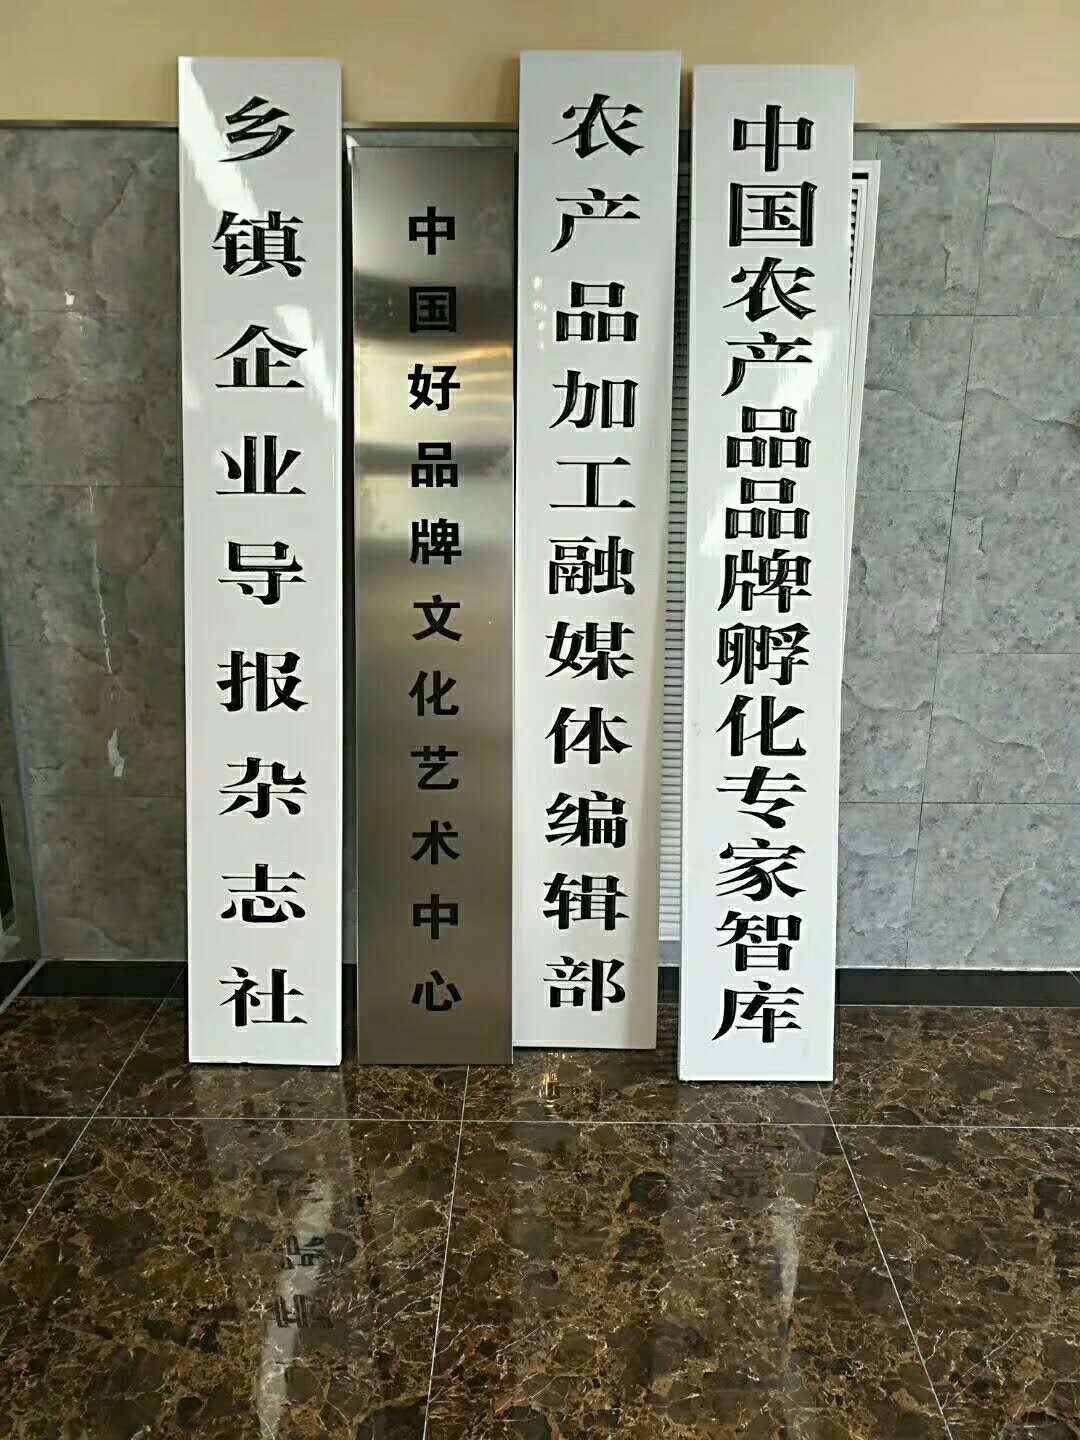 乡镇企业导报杂志社
中国好品牌文化艺术中心
农产品加工融媒体编辑部
中国农产品品牌孵化专家智库